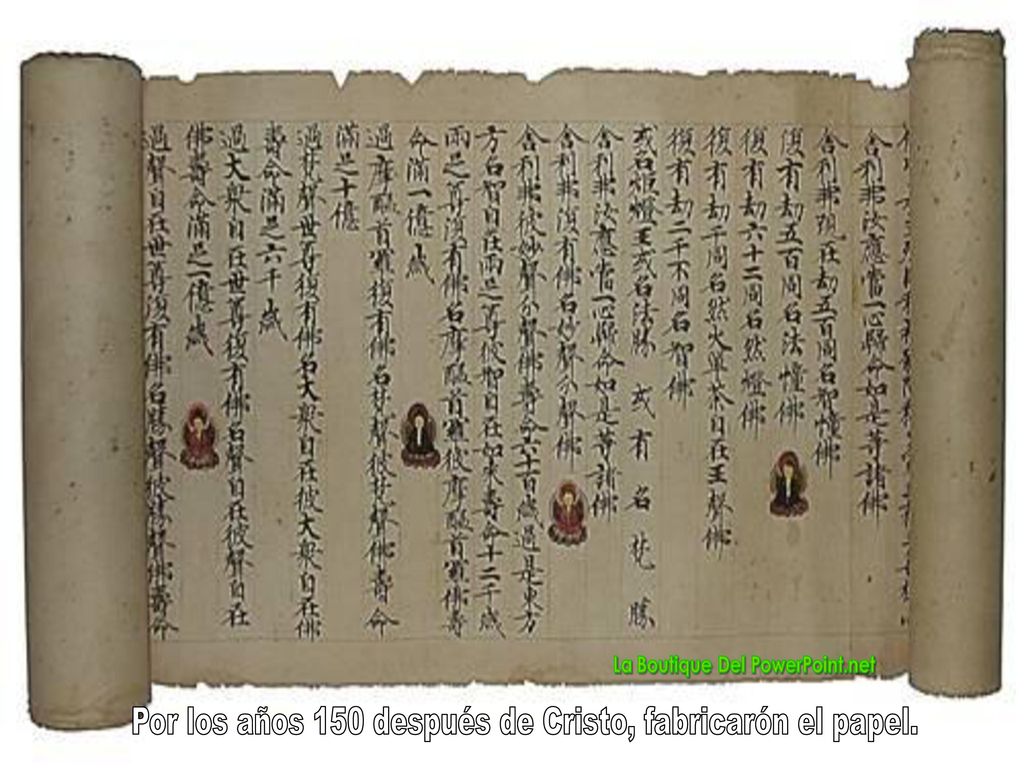 舍利弗汝應當一心歸命如是等諸佛
舍利弗現在劫五百同名智幢佛
復有劫五百同名法幢佛
復有劫六十二同名然燈佛
復有劫千同名然火單茶自在王聲佛
復有劫二千不同名智佛
或名姫燈王或名法勝 或有名梵勝
舍利弗汝應當一心歸命如是等諸佛
舍利弗復有佛名妙聲分聲佛
舍利弗彼妙聲分聲佛壽命六十百歲過是東方
方名智自在兩足尊彼智自在如來壽命十二千歲
兩足尊復有佛名摩醯首羅彼摩醯首羅佛壽
命滿一億歲
過摩醯首羅復有佛名梵聲彼梵聲佛壽命
滿足十億
過梵聲世尊復有佛名大衆自在彼大衆自在佛
壽命滿足六千歲
過大衆自在世尊復有佛名聲自在彼聲自在
佛壽命滿足一億歲
過聲自在世尊復有佛名勝聲彼勝聲佛壽命
La Boutique Del PowerPoint.net
Por los años 150 después de Cristo, fabricarón el papel.